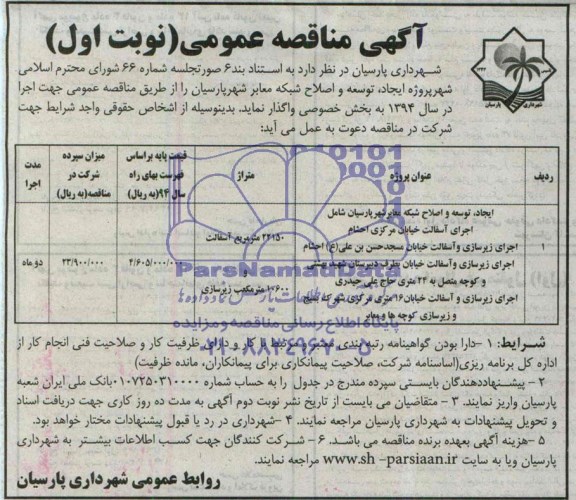 آگهی مناقصه عمومی(نوبت اول)
شهرداری پارسیان
شهرداری پارسیان در نظر دارد به استناد بند۶ صورتجلسه شماره ۶۶ شورای محترم اسلامی
شهرپروژه ایجاد، توسعه و اصلاح شبکه معابر شهرپارسیان را از طریق مناقصه عمومی جهت اجرا
در سال ۱۳۹۴ به بخش خصوصی واگذار نماید. بدینوسیله از اشخاص حقوقی واجد شرایط جهت
شرکت در مناقصه دعوت به عمل می آید:
ردیف
عنوان پروژه
متراژ
قیمت پایه براساس فهرست بهای راه سال ۹۴(به ریال)
میزان سپرده شرکت در مناقصه(به ریال)
مدت اجرا
۱
ایجاد، توسعه و اصلاح شبکه معابرشهرپارسیان شامل
اجرای آسفالت خیابان مرکزی احشام
اجرای زیرسازی وآسفالت خیابان مسجدحسن بن علی(ع) احشام
اجرای زیرسازی وآسفالت خیابان بطرف دبیرستان شهید بهشتی
و کوچه متصل به ۲۲ متری حاج علی حیدری
اجرای زیرسازی و آسفالت خیابان۱۶ متری مرکزی شهرک بسیج
و زیرسازی کوچه ها و معابر
۲۲۱۵۰ مترمربع آسفالت
۱۰۶۰۰ مترمکعب زیرسازی
۴/۶۰۵/۰۰۰/۰۰۰
۲۳/۹۰۰/۰۰۰
دو ماه
ParsNamadData
پایگاه اطلاع رسانی مناقصه و مزایده
۰۲۱-۸۸۳۴۹۶۷۰-۵
شرایط: ۱ -دارا بودن گواهینامه رتبه بندی معتبر و مرتبط با کار و دارای ظرفیت کار و صلاحیت فنی انجام کار از
اداره کل برنامه ریزی(اساسنامه شرکت، صلاحیت پیمانکاری برای پیمانکاران، مانده ظرفیت)
۲ - پیشنهاددهندگان بایستی سپرده مندرج در جدول را به حساب شماره ۰۱۰۷۲۵۰۳۱۰۰۰۰بانک ملی ایران شعبه
پارسیان واریز نمایند. ۳ - متقاضیان می بایست از تاریخ نشر نوبت دوم آگهی به مدت ده روز کاری جهت دریافت اسناد
و تحویل پیشنهادات به شهرداری پارسیان مراجعه نمایند. ۴ -شهرداری در رد یا قبول پیشنهادات مختار خواهد بود.
۵ -هزینه آگهی بعهده برنده مناقصه می باشد. ۶ - شرکت کنندگان جهت کسب اطلاعات بیشتر به شهرداری
پارسیان ویا به سایت www.sh -parsiaan.ir مراجعه نمایند.
روابط عمومی شهرداری پارسیان